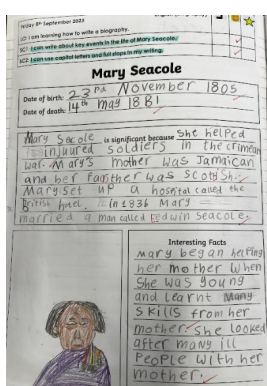 Friday 8th September 2023
LO: I am learning how to write a biography.
SC1: I can write about key events in the life of Mary Seacole.
SC2: I can use capital letters and full stops in my writing.
Mary Seacole
Date of birth: 23rd November 1805
Date of death: 14th may 1881
Mary Sacole is significant because She helped
injured soldiers in the crimean
war. Mary's mother was Jamaican
and her farther was Scotish.
Mary set up a hospital called the
British hotel. in 1836 Mary
married a man called Edwin Seacole.
Interesting Facts
mary began helping
her mother when
She was young
and learnt many
skills from her
mother. She looked
after many ill
People with her
mother.